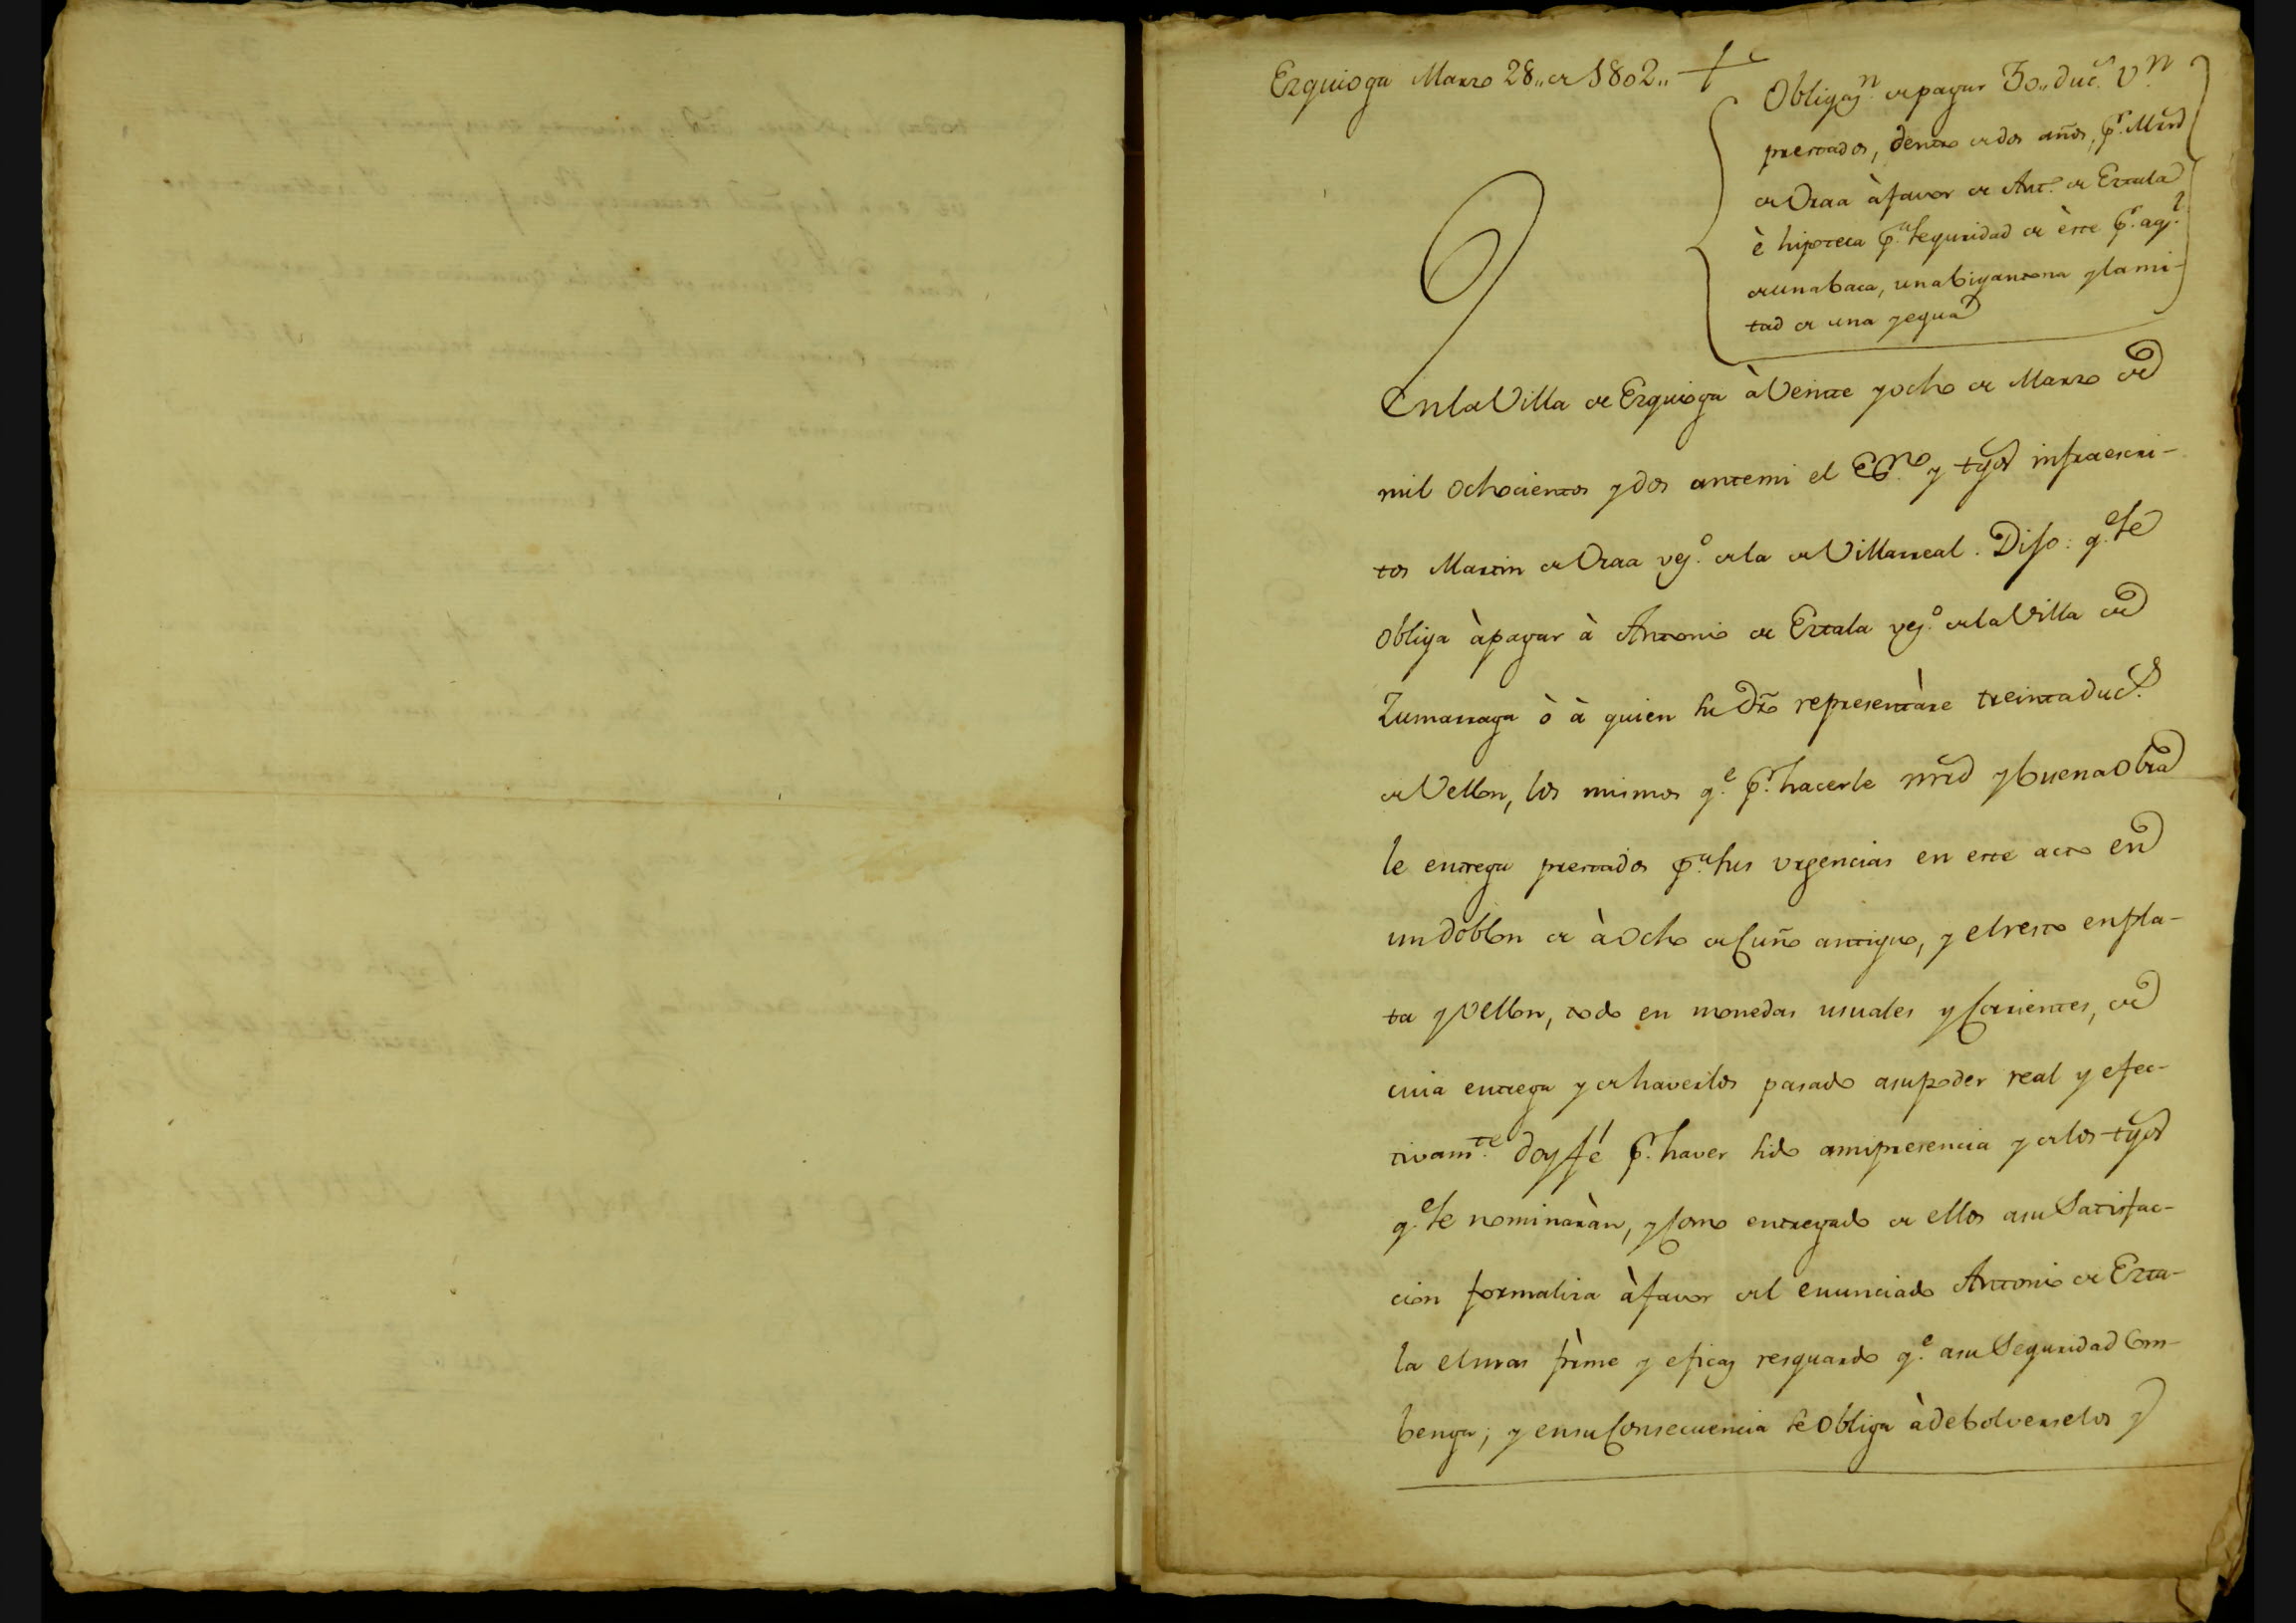 Ezquioga Marzo 28,, de 1802,,
Obligaz.n de pagar 30,, duc.s v.n
prestados, dentro de dos años, p.r Mrn
de Oraa à favor de Ant.o de Eztala
è hipoteca p.a seguridad de èste p.r aq.l
de una baca, una bigantona y la mi-
tad de una yegua
En la Villa de Ezquioga à Veinte y ocho de Marzo de
mil ochocientos y dos ante mi el Essno y tgos infraescri-
tos Martin de Oraa vez.o de la de Villarreal. Dijo: q.e se
obliga à pagar à Antonio de Eztala vez.o de la Villa de
Zumarraga ò à quien su dro representàre treinta duc.s
de Vellon, los mismos q.e p.r hacerle mrd y buena obra
le entrega prestados p.a sus urgencias en este acto en
un doblon de à ocho de Cuño antiguo, y el resto en pla-
ta y vellon, todo en monedas usuales y Corrientes, de
cuia entrega y de haverlos pasado a su poder real y efec-
tivam.te doy fé p.r haver sido a mi presencia y de los tgos
q.e se nominaràn, y Como entregado de ellos a su Satisfac-
cion formaliza à favor del enunciado Antonio de Ezta-
la el mas firme y eficaz resguardo q.e a su Seguridad Com-
benga; y en su Consecuencia se obliga à debolverselos y